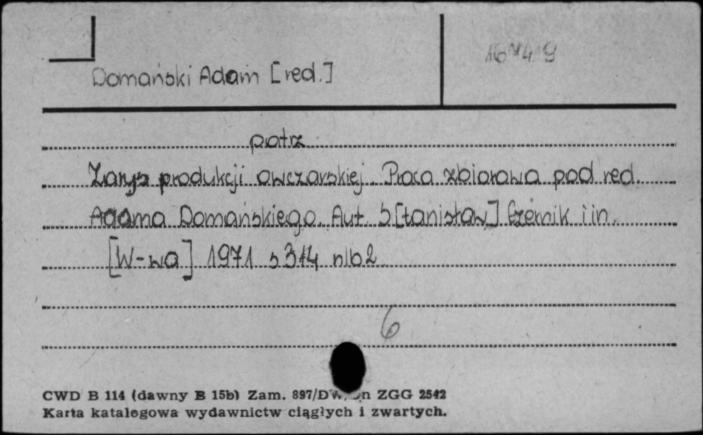 Domański Adam [red.]
patrz
Zarys produkcji owczarskiej. Praca zbiorowa pod red.
Adama Domańskiego. Aut. S[tanisław] Czernik i in.
[W-wa] 1971 s 314 nlb 2
6
CWD B 114 (dawny B 15b) Zam. 897/DW ZGG 2542
Karta katalogowa wydawnictw ciągłych i zwartych.